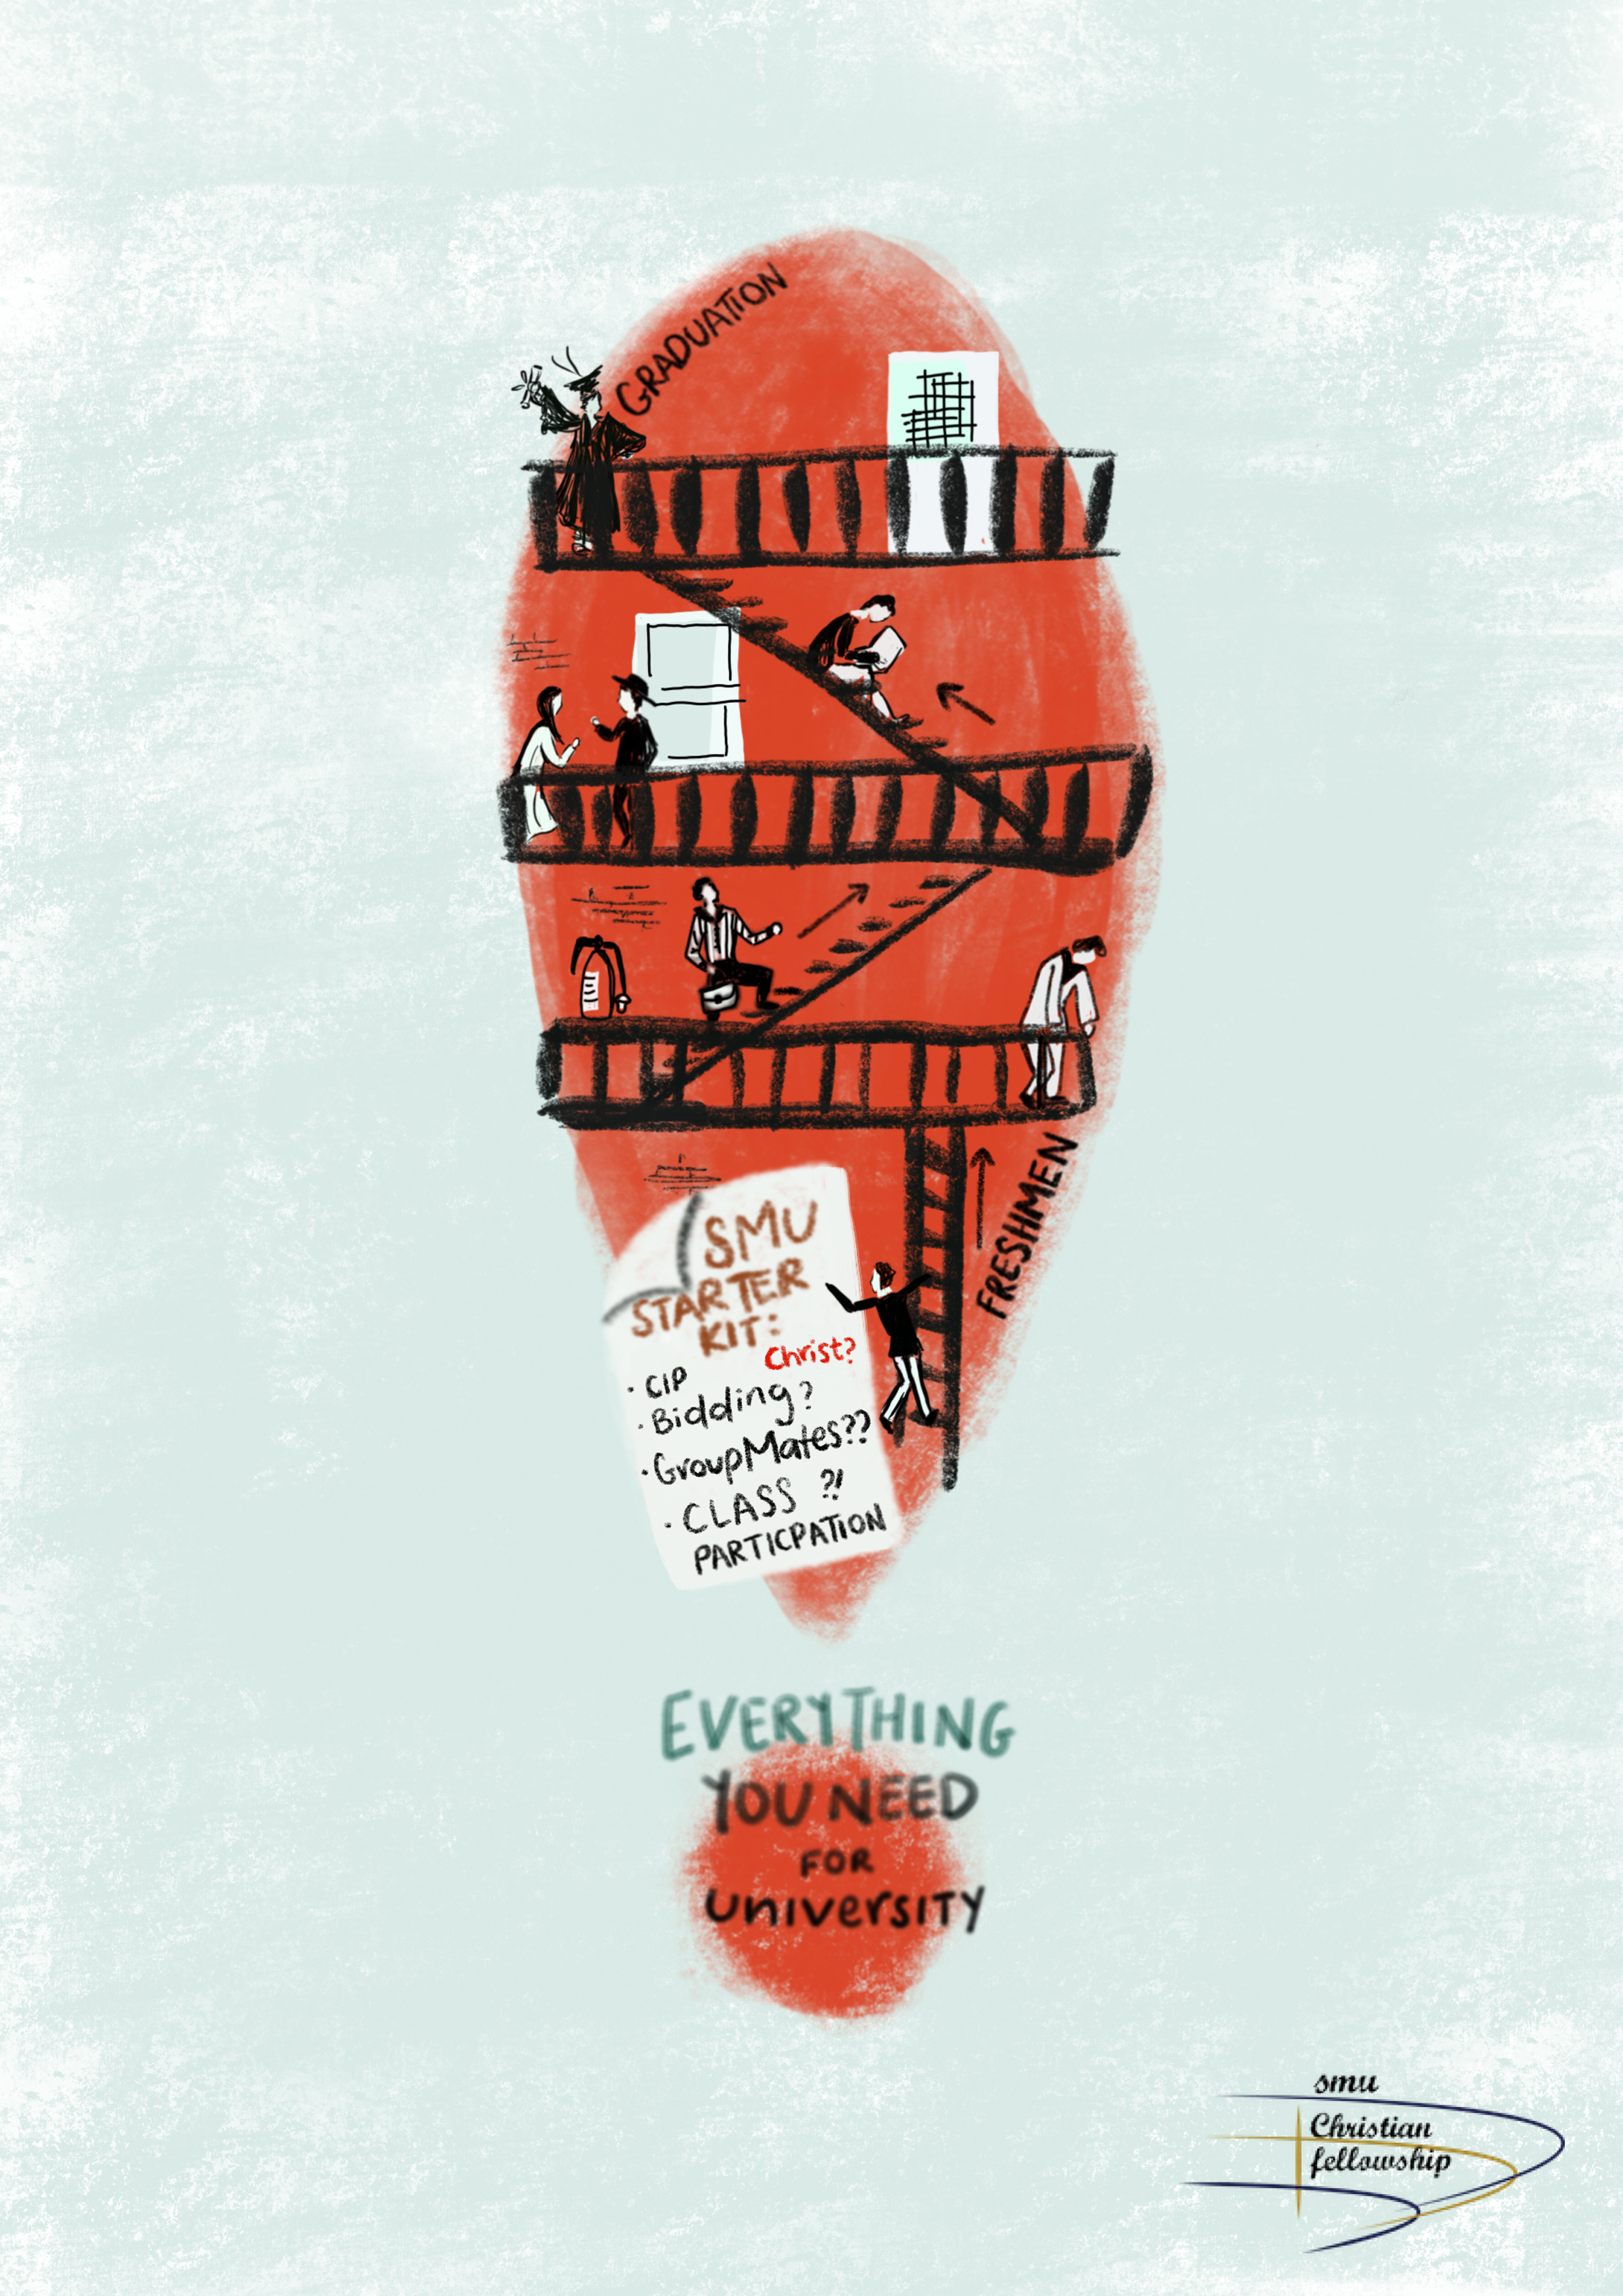 GRADUATION
FRESHMEN
SMU
STARTER
KIT:
Christ?
· CIP
· Bidding?
· GroupMates??
· CLASS ?!
PARTICPATION
EVERYTHING
YOU NEED
FOR
UNIVERSITY
smu
Christian
fellowship